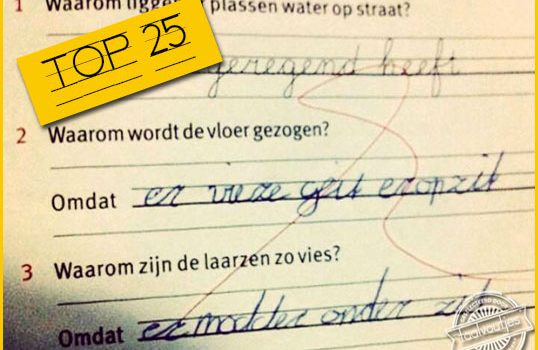 1 Waarom liggen plassen water op straat?
TOP 25
geregend heeft
2 Waarom wordt de vloer gezogen?
Omdat er vieze geit eropzit
3 Waarom zijn de laarzen zo vies?
Omdat er modder onder zit
taalvoutjes